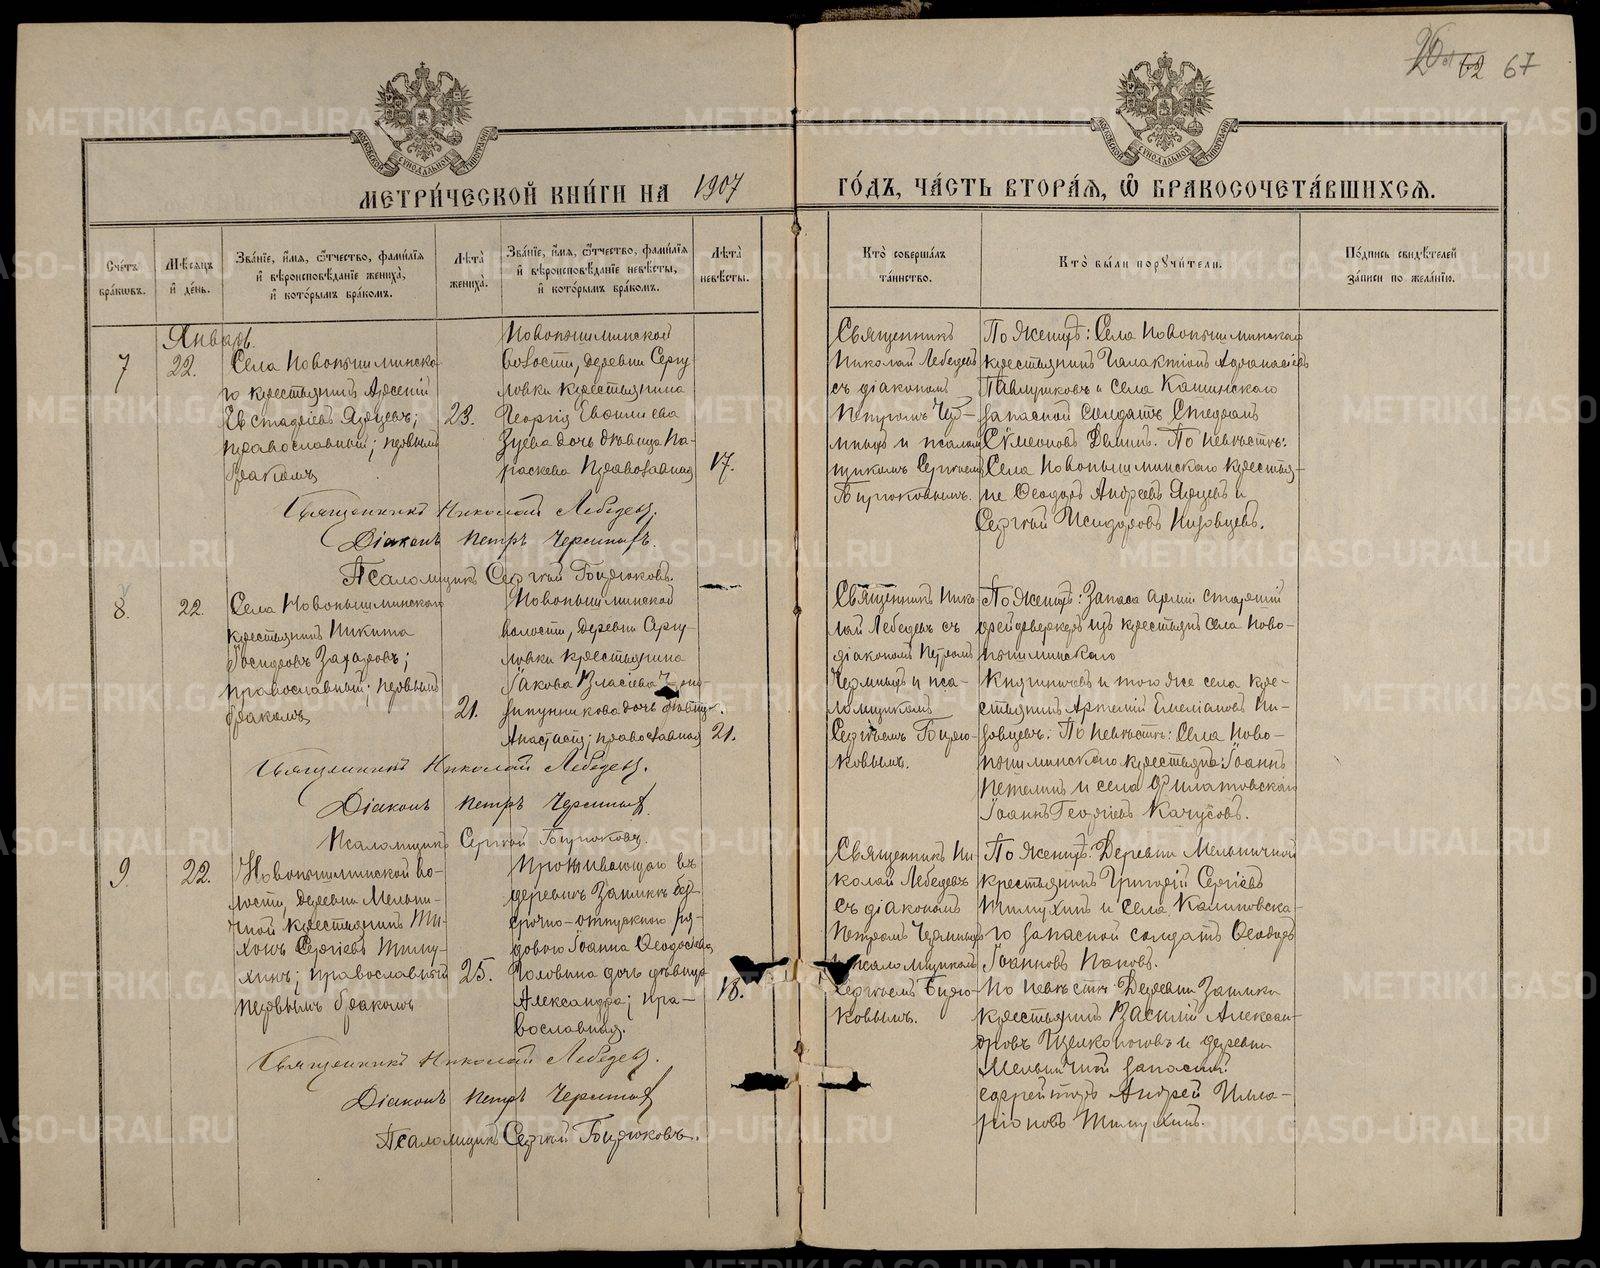 26 62 67
МЕТРИ́ЧЕСКОЙ КНИ́ГИ НА 1907 ГО́ДЪ, ЧА́СТЬ ВТОРА́Я, Ѿ БРАКОСОЧЕТА́ВШИХСЯ.
Сче́тъ бра́ковъ.
Мѣ́сяцъ и де́нь.
Зва́нїе, и́мя, ѻ́тчество, фами́лїя и вѣроисповѣ́данїе жениха̀, и кото́рымъ бра́комъ.
Лѣ́та жениха̀.
Зва́нїе, и́мя, ѻ́тчество, фами́лїя и вѣроисповѣ́данїе невѣ́сты, и кото́рымъ бра́комъ.
Лѣ́та невѣ́сты.
Кто̀ соверша́лъ та́инство.
Кто̀ бы́ли поручи́тели.
По́дпись свидѣ́телей за́писи по жела́нїю.
Январь.
7
22.
Села Новопышминска-
го крестьянинъ Арсеній
Евстафіевъ Ярцевъ;
православный; первымъ
бракомъ
23.
Новопышминской
волости, деревни Сергу-
ловки крестьянина
Георгія Евфиміева
Зуева дочь дѣвица Па-
раскева Православная
17.
Священникъ
Николай Лебедевъ
съ діакономъ
Петромъ Чер-
мнымъ и псалом
щикомъ Сергіемъ
Бирюковымъ.
По женихѣ: Села Новопышминскаго
крестьянинъ Галактіонъ Афанасіевъ
Павлушковъ и села Камышскаго
запасной солдатъ Стефанъ
Сѷмеоновъ Деминъ. По невѣстѣ:
Села Новопышминскаго крестья-
не Ѳеодоръ Андреевъ Ярцевъ и
Сергѣй Исидоровъ Низовцевъ.
Священникъ Николай Лебедевъ.
Діаконъ Петръ Чермныхъ.
Псаломщикъ Сергѣй Бирюковъ.
8.
22.
Села Новопышминскаго
крестьянинъ Никита
Іосифовъ Захаровъ;
православный; первымъ
бракомъ
21.
Новопышминской
волости, деревни Сергу-
ловки крестьянина
Іакова Власіева
зипунникова дочь дѣвица
Анастасія; православная
21.
Священникъ Нико-
лай Лебедевъ съ
діакономъ Петромъ
Чермнымъ и пса-
ломщикомъ
Сергіемъ Бирю-
ковымъ.
По женихѣ: Запаса арміи старшій
фейерверкеръ изъ крестьянъ села Ново-
пышминскаго
Княгничевъ и того же села кре-
стьянинъ Артемій Емеліановъ Ни-
зовцевъ. По невѣстѣ: Села Ново-
пышминскаго крестьянинъ Іоаннъ
Петелинъ и села Филатовскаго
Іоаннъ Георгіевъ Качусовъ.
Священникъ Николай Лебедевъ.
Діаконъ Петръ Чермныхъ.
Псаломщикъ Сергѣй Бирюковъ.
9.
22.
Новопышминской во-
лости, деревни Мельни-
чной крестьянинъ Ти-
хонъ Сергіевъ Тиму-
хинъ; православный
первымъ бракомъ
25.
Проживающаго въ
деревнѣ Заимкѣ без-
срочно-отпускного ря-
дового Іоанна Ѳеодосіева
Головина дочь дѣвица
Александра; пра-
вославная.
18.
Священникъ Ни
колай Лебедевъ
съ діакономъ
Петромъ Чермнымъ
и псаломщикомъ
Сергіемъ Бирю-
ковымъ.
По женихѣ: Деревни Мельничной
крестьянинъ Григорій Сергіевъ
Тимухинъ и села Калиновска-
го запасной солдатъ Ѳеодоръ
Іоанновъ Пановъ.
По невѣстѣ: Деревни Заимки
крестьянинъ Василій Алексан-
дровъ Щелконоговъ и деревни
Мельничной запасный
ефрейторъ Андрей Илла-
ріоновъ Тимухинъ.
Священникъ Николай Лебедевъ.
Діаконъ Петръ Чермныхъ
Псаломщикъ Сергѣй Бирюковъ.
METRIKI.GASO-URAL.RU